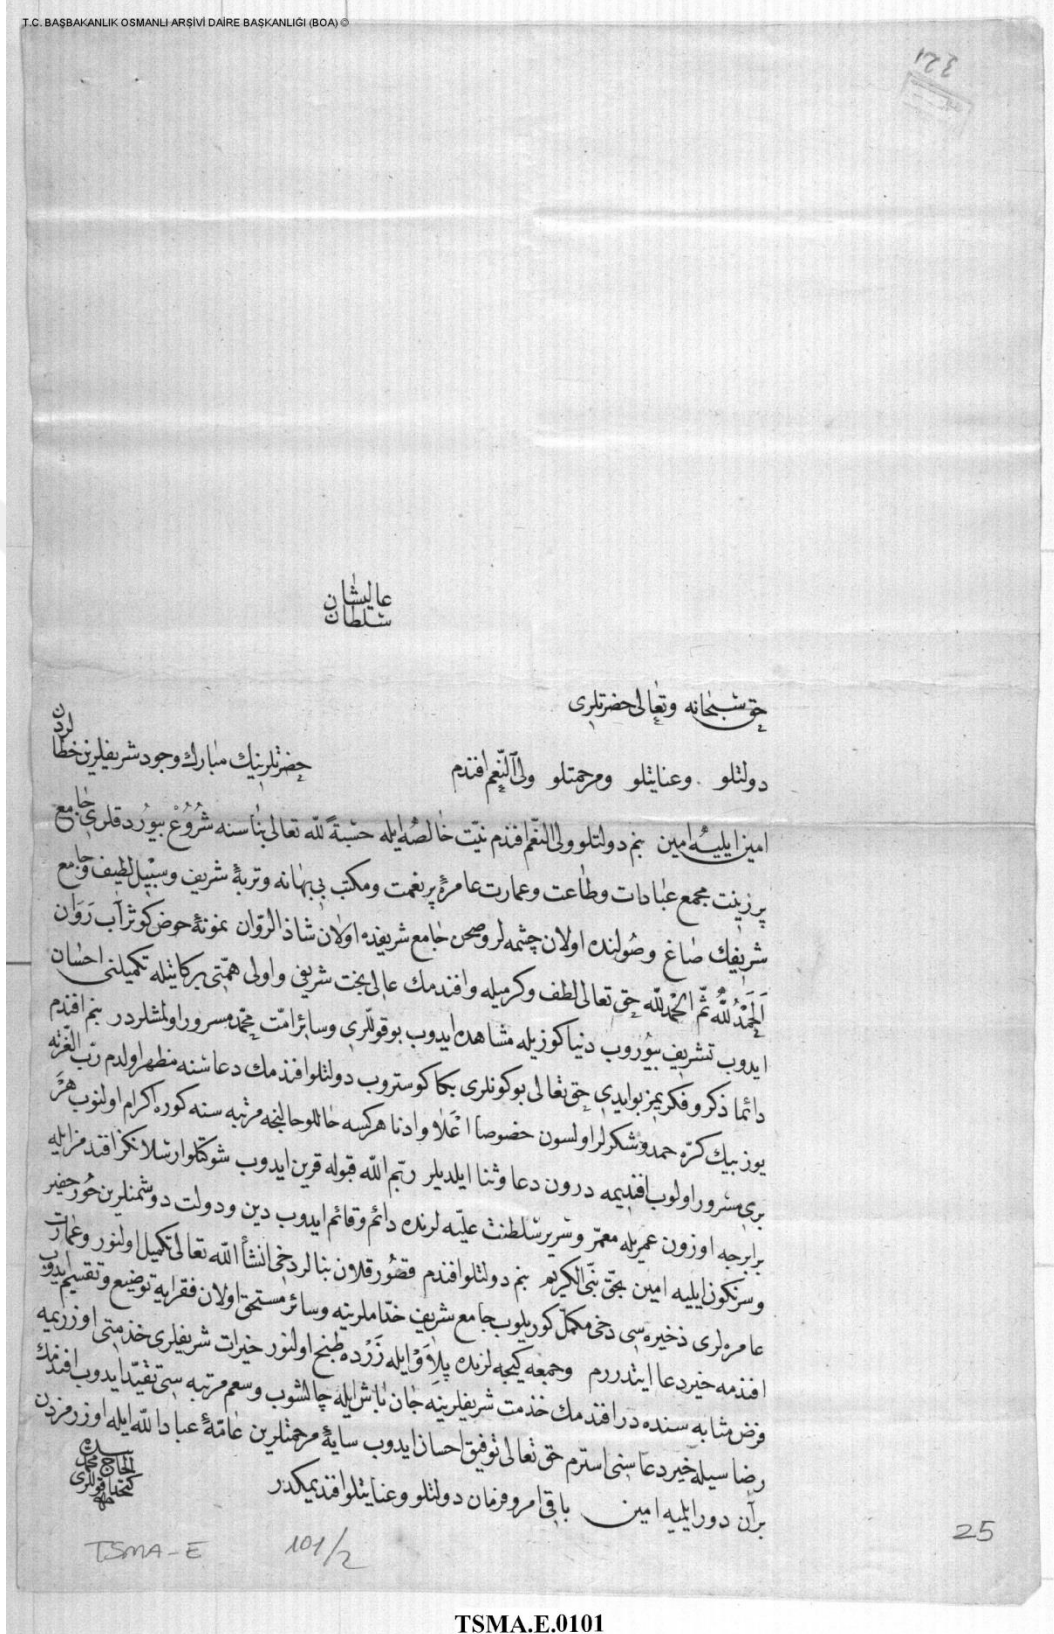 T.C. BAŞBAKANLIK OSMANLI ARŞİVİ DAİRE BAŞKANLIĞI (BOA) ©
321
عاليشان
سلطان
حق سبحانه وتعالى حضرتلرى
دولتلو وعنايتلو ومرحمتلو ولى النعم افندم حضرتلرينك مبارك وجود شريفلرين خطالردن
امين ايليه امين بنم دولتلو ولى النعم افندم نيت خالصه ايله حسبة لله تعالى بناسنه شروع بيوردقلرى جامع
پر زينت مجمع عبادات وطاعت وعمارت عامرۀ پر نعمت ومكتب بى بهانه وتربۀ شريف وسبيل لطيف وجامع
شريفك صاغ وصولنده اولان چشمه لر وصحن جامع شريفده اولان شاذالروان نمونۀ حوض كوثر آب روان
الحمد لله ثم الحمد لله حق تعالى لطف وكرميله وافندمك عالى بخت شريفى واولى همتى بركاتيله تكميلنى احسان
ايدوب تشريف بيوروب دنيا كوزيله مشاهده ايدوب بو قوللرى وسائر امت محمد مسرور اولمشلردر بنم افندم
دائما ذكر وفكريمز بو ايدى حق تعالى بو كونلرى بكا كوستروب دولتلو افندمك دعاسنه مظهر اولدم رب العزته
يوز بيك كره حمد وشكرلر اولسون خصوصا اعلا وادنا هركسه حاللو حالنجه مرتبه سنه كوره اكرام اولنوب هر
برى مسرور اولوب افنديمه درون دعا وثنا ايلديلر ربم الله قبوله قرين ايدوب شوكتلو ارسلانكز افندمز ايله
برابرجه اوزون عمريله معمر وسرير سلطنت عليه لرنده دائم وقائم ايدوب دين ودولت دوشمنلرين خور حقير
وسرنكون ايليه امين بحق نبى الكريم بنم دولتلو افندم قصور قلان بنالر دخى انشأ الله تعالى تكميل اولنور وعمارت
عامره لرى ذخيره سى دخى مكمل كوريلوب جامع شريف خداملرينه وسائر مستحق اولان فقرايه توضيع وتقسيم ايدوب
افندمه خير دعا ايتدررم وجمعه كيجه لرنده پلاو ايله زرده طبخ اولنور خيرات شريفلرى خذمتى اوزريمه
فرض مثابه سنده در افندمك خذمت شريفلرينه جان باش ايله چالشوب وسعم مرتبه سى تقيد ايدوب افندمك
رضاسيله خير دعاسنى استرم حق تعالى توفيق احسان ايدوب سايۀ مرحمتلرين عامۀ عباد الله ايله اوزرمزدن
بر آن دور ايلميه امين باقى امر وفرمان دولتلو وعنايتلو افنديمكدر
بنده
الحاج محمد
كتخدا قوللرى
TSMA-E 101/2
25
TSMA.E.0101